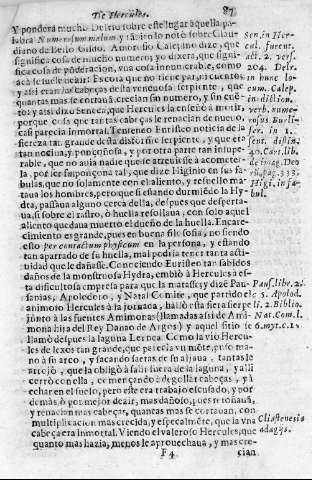 De Hercules. 87
Y pondera mucho Delrio sobre este lugar aquella pa-
labra Numerosum malum y tãbien lo notò sobre Clau-
diano de Bello Gildo. Ambrosio Calepino dize, que
significa cosa de mucho numero, yo dixera, que signi-
fica cosa de põderacion, voz cosa innumerable, como
acà se suele dezir. Es cosa que no tiene par, ni cuento,
y assi eran las cabeças desta venenosa serpiente, que
quantas mas se cortavã crecian sin numero, y sin cuẽ-
to, y assi dize Seneca, que Hercules la enseñò a morir,
porque cõ las que tantas cabeças le renacian de nuevo,
casi parecia inmortal. Teniendo Euristeo noticia de la
fiereza tan grande desta disforme serpiente, y que era
tan nociua, y ponçoñosa, y por otra parte tan insupe-
rable, que no auia nadie que se atreuiesse à acometer-
la, por ser tan ponçoñosa tal, que dize Higinio en sus fa-
bulas, que no solamente con el aliento, y resuello ma-
taua los hombres, pero que si estando durmiẽdo la Hy-
dra, passaua alguno cerca della, despues que desperta-
ua, si sobre el rastro, ò huella resollaua, con solo aquel
aliento quedaua muerto el dueño de la huella. Encare-
cimiento grande, pues en buena filosofia, no siendo
esto per contractum physicum en la persona, y estando
tan apartado de su huella, mal podria tener tanta acti-
tividad que le dañasse. Conociendo Euristeo tan sabidos
daños de la monstruosa Hydra, embiò à Hercules à es-
ta dificultosa empresa para que la matasse; y dize Pau-
sanias, Apolodoro, y Natal Comite, que partido el
animoso Hercules à la jornada, hallò esta fiera sierpe
jũnto à las fuentes Amimonas (llamadas assi de Ami-
mona hija del Rey Danao de Argos) y aquel sitio se
llamò despues la laguna Lernea. Como la viò Hercu-
les de lexos tan grande, que parecia vn mõte, puso ma-
no à su arco, y sacando saetas de su aljaua, tantas le
arrojò, que la obligò à salir fuera de la laguna, y alli
cerrò con ella, començando à degollar cabeças, y à
echar en el suelo, pero este era trabajo escusado, y por
demàs, ò por mejor dezir, mas dañoso, pues retoñauã,
y renacian mas cabeças, quantas mas se cortauan, con
multiplicacion mas crecida, y especialmẽte, que la vna
cabeça era inmortal. Viendo el valeroso Hercules, que
quanto mas hazia, menos le aprouechaua, y mas cre-
F 4. cian
Sen. in Her-
cul. furent.
act. 2. vers.
204. Delr.
in hunc lo-
cum. Calep.
in diction.
verb. nume-
rosus Burli-
fer. in 1.
sent. distin.
40. Cart. lib.
de imag. Deo
rũ, pag. 333.
Higi. in fa-
bul.
Paus. lib. 2.
5. Apolod.
l. 2. Biblio.
Nat. Com. l.
6. myt. c. 1.
Cliastenes in
adagijs.